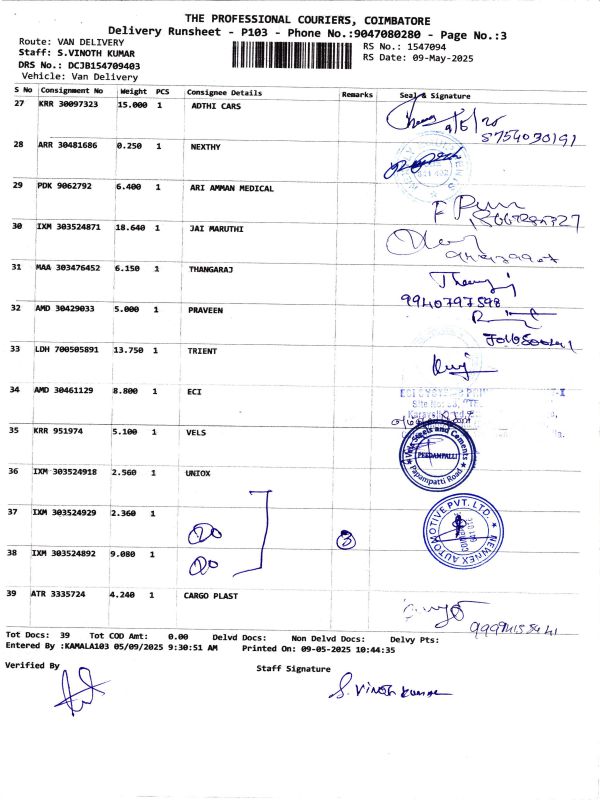 THE PROFESSIONAL COURIERS, COIMBATORE
Delivery Runsheet - P103 - Phone No.:9047080280 - Page No.:3
Route: VAN DELIVERY
RS No.: 1547094
Staff: S.VINOTH KUMAR
RS Date: 09-May-2025
DRS No.: DCJB154709403
Vehicle: Van Delivery
S No Consignment No Weight PCS Consignee Details Remarks Seal & Signature
27 KRR 30097323 15.000 1 ADTHI CARS
9/5/25
8754030191
28 ARR 30481686 0.250 1 NEXTHY
29 PDK 9062792 6.400 1 ARI AMMAN MEDICAL
30 IXM 303524871 18.640 1 JAI MARUTHI
31 MAA 303476452 6.150 1 THANGARAJ
9940797598
32 AMD 30429033 5.000 1 PRAVEEN
33 LDH 700505891 13.750 1 TRIENT
34 AMD 30461129 8.800 1 ECI
35 KRR 951974 5.100 1 VELS
Vels Steels and Cements
PEEDAMPALLI
Papampatti Road
36 IXM 303524918 2.560 1 UNIOX
37 IXM 303524929 2.360 1
3
NEWNEX AUTOMOTIVE PVT. LTD.
38 IXM 303524892 9.080 1
39 ATR 3335724 4.240 1 CARGO PLAST
Tot Docs: 39 Tot COD Amt: 0.00 Delvd Docs: Non Delvd Docs: Delvy Pts:
Entered By :KAMALA103 05/09/2025 9:30:51 AM Printed On: 09-05-2025 10:44:35
Verified By
Staff Signature
S. Vinoth Kumar